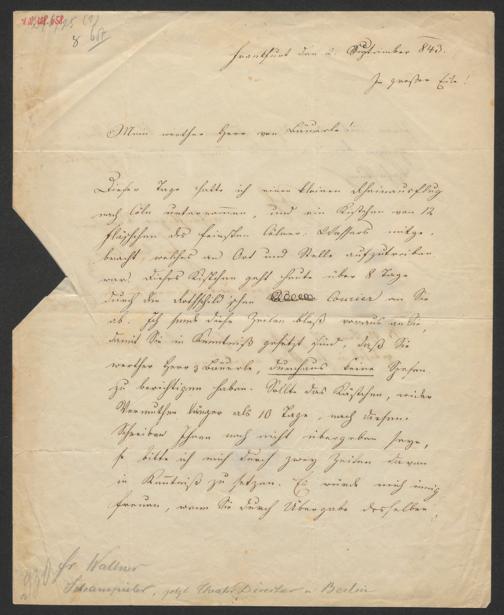 Frankfurt den 2. September 843.
In großer Eile!
Mein werther Herr von Bäuerle!
Dieser Tage hatte ich einen kleinen Rheinausflug
nach Cöln unternommen, und ein Kistchen von 12
Fläschchen des feinsten Cölner Wassers mitge-
bracht, welches an Ort und Stelle aufzutreiben
war. Dieses Kistchen geht heute über 8 Tage
durch den Rothschild'schen Courier an Sie
ab. Ich sende diese Zeilen bloß voraus an Sie,
damit Sie in Kenntniß gesetzt sind, daß Sie
werther Herr v Bäuerle, durchaus keine Spesen
zu berichtigen haben. Sollte das Kästchen, wider
Vermuthen länger als 10 Tage, nach diesem
Schreiben Ihnen noch nicht übergeben seyn,
so bitte ich mich durch zwey Zeilen davon
in Kenntniß zu setzen. Es würde mich innig
freuen, wenn Sie durch Übergabe desselben
Fr. Wallner
Schauspieler, jetzt Theater Director in Berlin